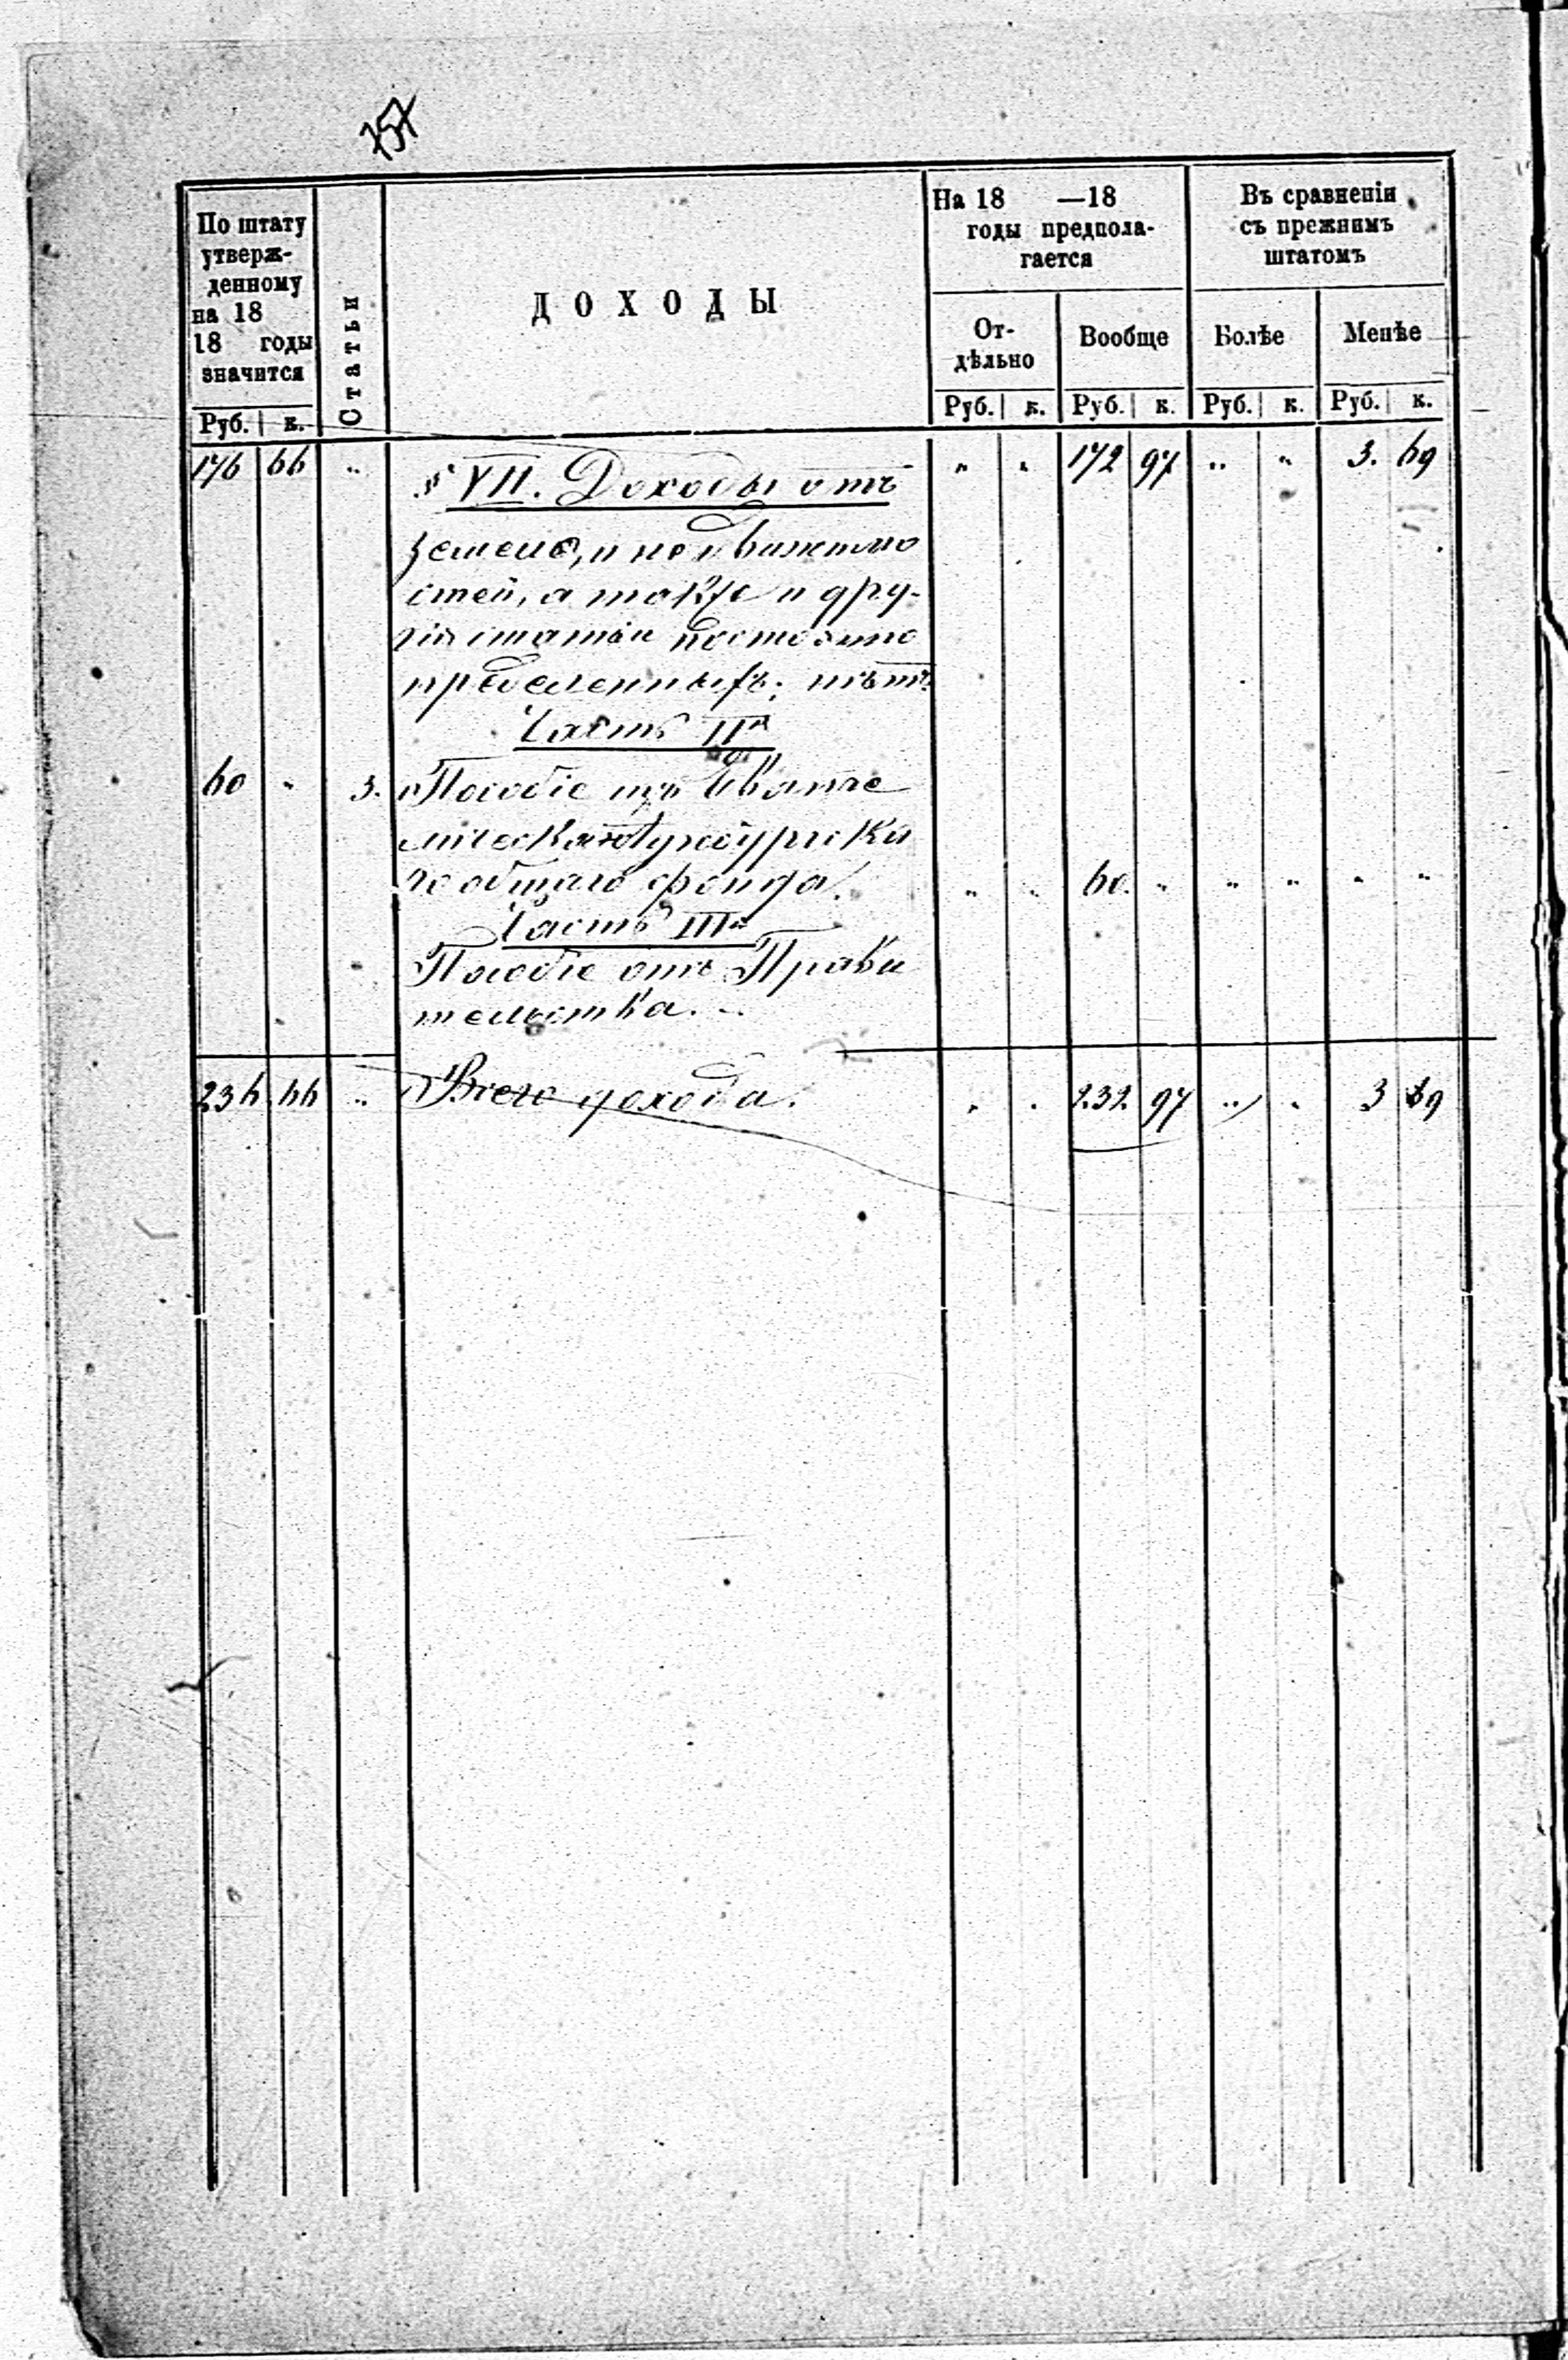 757
По штату
утверж-
денному
на 18
18 годы
значится
Руб. к.
Статьи
ДОХОДЫ
На 18 —18
годы предпола-
гается
От-
дѣльно
Вообще
Руб. к. Руб. к.
Въ сравненіи
съ прежнимъ
штатомъ
Болѣе Менѣе
Руб. к. Руб. к.
176 66 „ § VII. Доходы отъ „ „ 172 97 „ „ 3. 69
земель, и недвижимо
стей, а также и дру-
гія статьи постоянно
предѣленныхъ; нѣтъ
Часть IIя
60 „ 3. Пособіе изъ Еванге
лическолютиранскаго
го общаго фонда. „ „ 60. „ „ „ „ „
Часть IIIя
Пособіе отъ Прави
тельства.
236 66 „ Всего дохода. „ „ 232 97 „ „ 3 69